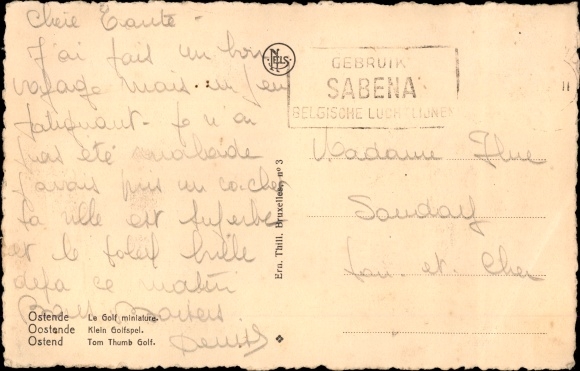 Chère Tante -
J'ai fait un bon
voyage mais un peu
fatiguant - je n'ai
pas été malade
j'avais pris un cachet
la ville est superbe
et le soleil brille
déjà ce matin
Bons Baisers
Ostende Le Golf miniature.
Oostende Klein Golfspel.
Ostend Tom Thumb Golf.
NELS
Ern. Thill, Bruxelles, nº 3
GEBRUIK
SABENA
BELGISCHE LUCHTLIJNEN
Madame
Souday
Loir et Cher